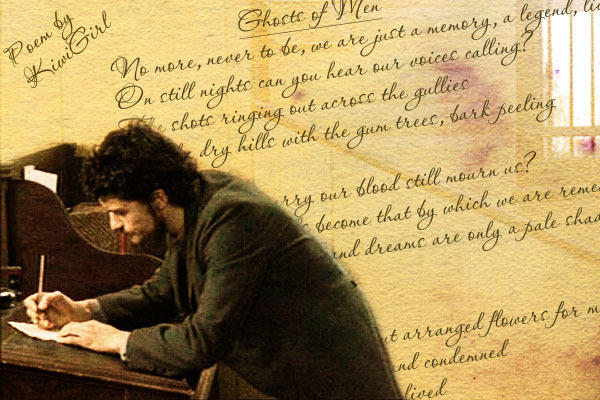 Poem by
KiwiGirl
Ghosts of Men
No more, never to be, we are just a memory, a legend,
On still nights can you hear our voices calling?
shots ringing out across the gullies
dry hills with the gum trees, bark peeling
our blood still mourn us?
become that by which we are
dreams are only a pale
arranged flowers for
condemned
lived